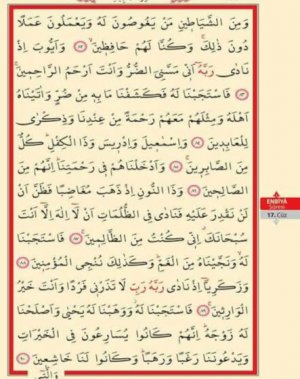 وَمِنَ الشَّيَاطِينِ مَنْ يَغُوصُونَ لَهُ وَيَعْمَلُونَ عَمَلًا
دُونَ ذٰلِكَ وَكُنَّا لَهُمْ حَافِظِينَ ﴿٨٢﴾ وَاَيُّوبَ اِذْ
نَادٰى رَبَّهُٓ اَنّ۪ي مَسَّنِيَ الضُّرُّ وَاَنْتَ اَرْحَمُ الرَّاحِمِينَ
﴿٨٣﴾ فَاسْتَجَبْنَا لَهُ فَكَشَفْنَا مَا بِهِ مِنْ ضُرٍّ وَاٰتَيْنَاهُ
اَهْلَهُ وَمِثْلَهُمْ مَعَهُمْ رَحْمَةً مِنْ عِنْدِنَا وَذِكْرٰى
لِلْعَابِدِينَ ﴿٨٤﴾ وَاِسْمٰعِيلَ وَاِدْرِيسَ وَذَا الْكِفْلِ كُلٌّ
مِنَ الصَّابِرِينَ ﴿٨٥﴾ وَاَدْخَلْنَاهُمْ فِي رَحْمَتِنَا اِنَّهُمْ مِنَ
الصَّالِحِينَ ﴿٨٦﴾ وَذَا النُّونِ اِذْ ذَهَبَ مُغَاضِبًا فَظَنَّ اَنْ
لَنْ نَقْدِرَ عَلَيْهِ فَنَادٰى فِي الظُّلُمَاتِ اَنْ لَٓا اِلٰهَ اِلَّٓا اَنْتَ
سُبْحَانَكَ اِنّ۪ي كُنْتُ مِنَ الظَّالِمِينَ ﴿٨٧﴾ فَاسْتَجَبْنَا
لَهُ وَنَجَّيْنَاهُ مِنَ الْغَمِّ وَكَذٰلِكَ نُنْجِي الْمُؤْمِنِينَ ﴿٨٨﴾
وَزَكَرِيَّٓا اِذْ نَادٰى رَبَّهُ رَبِّ لَا تَذَرْنِي فَرْدًا وَاَنْتَ خَيْرُ
الْوَارِثِينَ ﴿٨٩﴾ فَاسْتَجَبْنَا لَهُ وَوَهَبْنَا لَهُ يَحْيٰى وَاَصْلَحْنَا
لَهُ زَوْجَهُ اِنَّهُمْ كَانُوا يُسَارِعُونَ فِي الْخَيْرَاتِ
وَيَدْعُونَنَا رَغَبًا وَرَهَبًا وَكَانُوا لَنَا خَاشِعِينَ ﴿٩٠﴾
وَالَّتِي
ENBİYÂ
Sûresi
17. Cüz